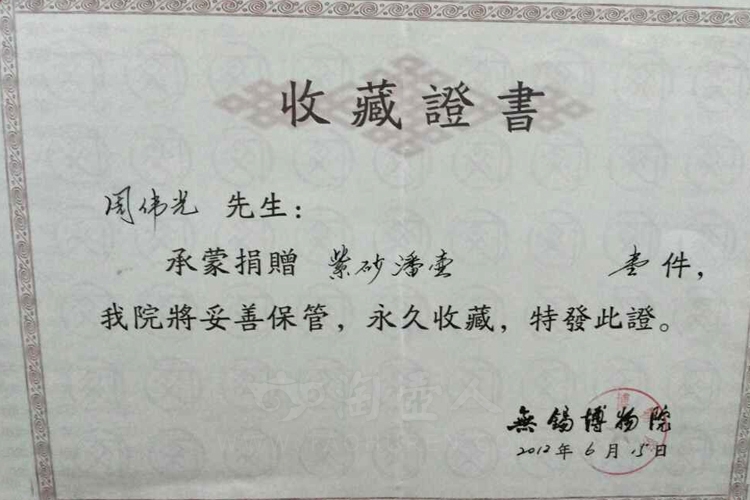 收藏證書
周伟光 先生：
承蒙捐贈 紫砂潘壶 壹件，
我院將妥善保管，永久收藏，特發此證。
無錫博物院
2012年6月15日